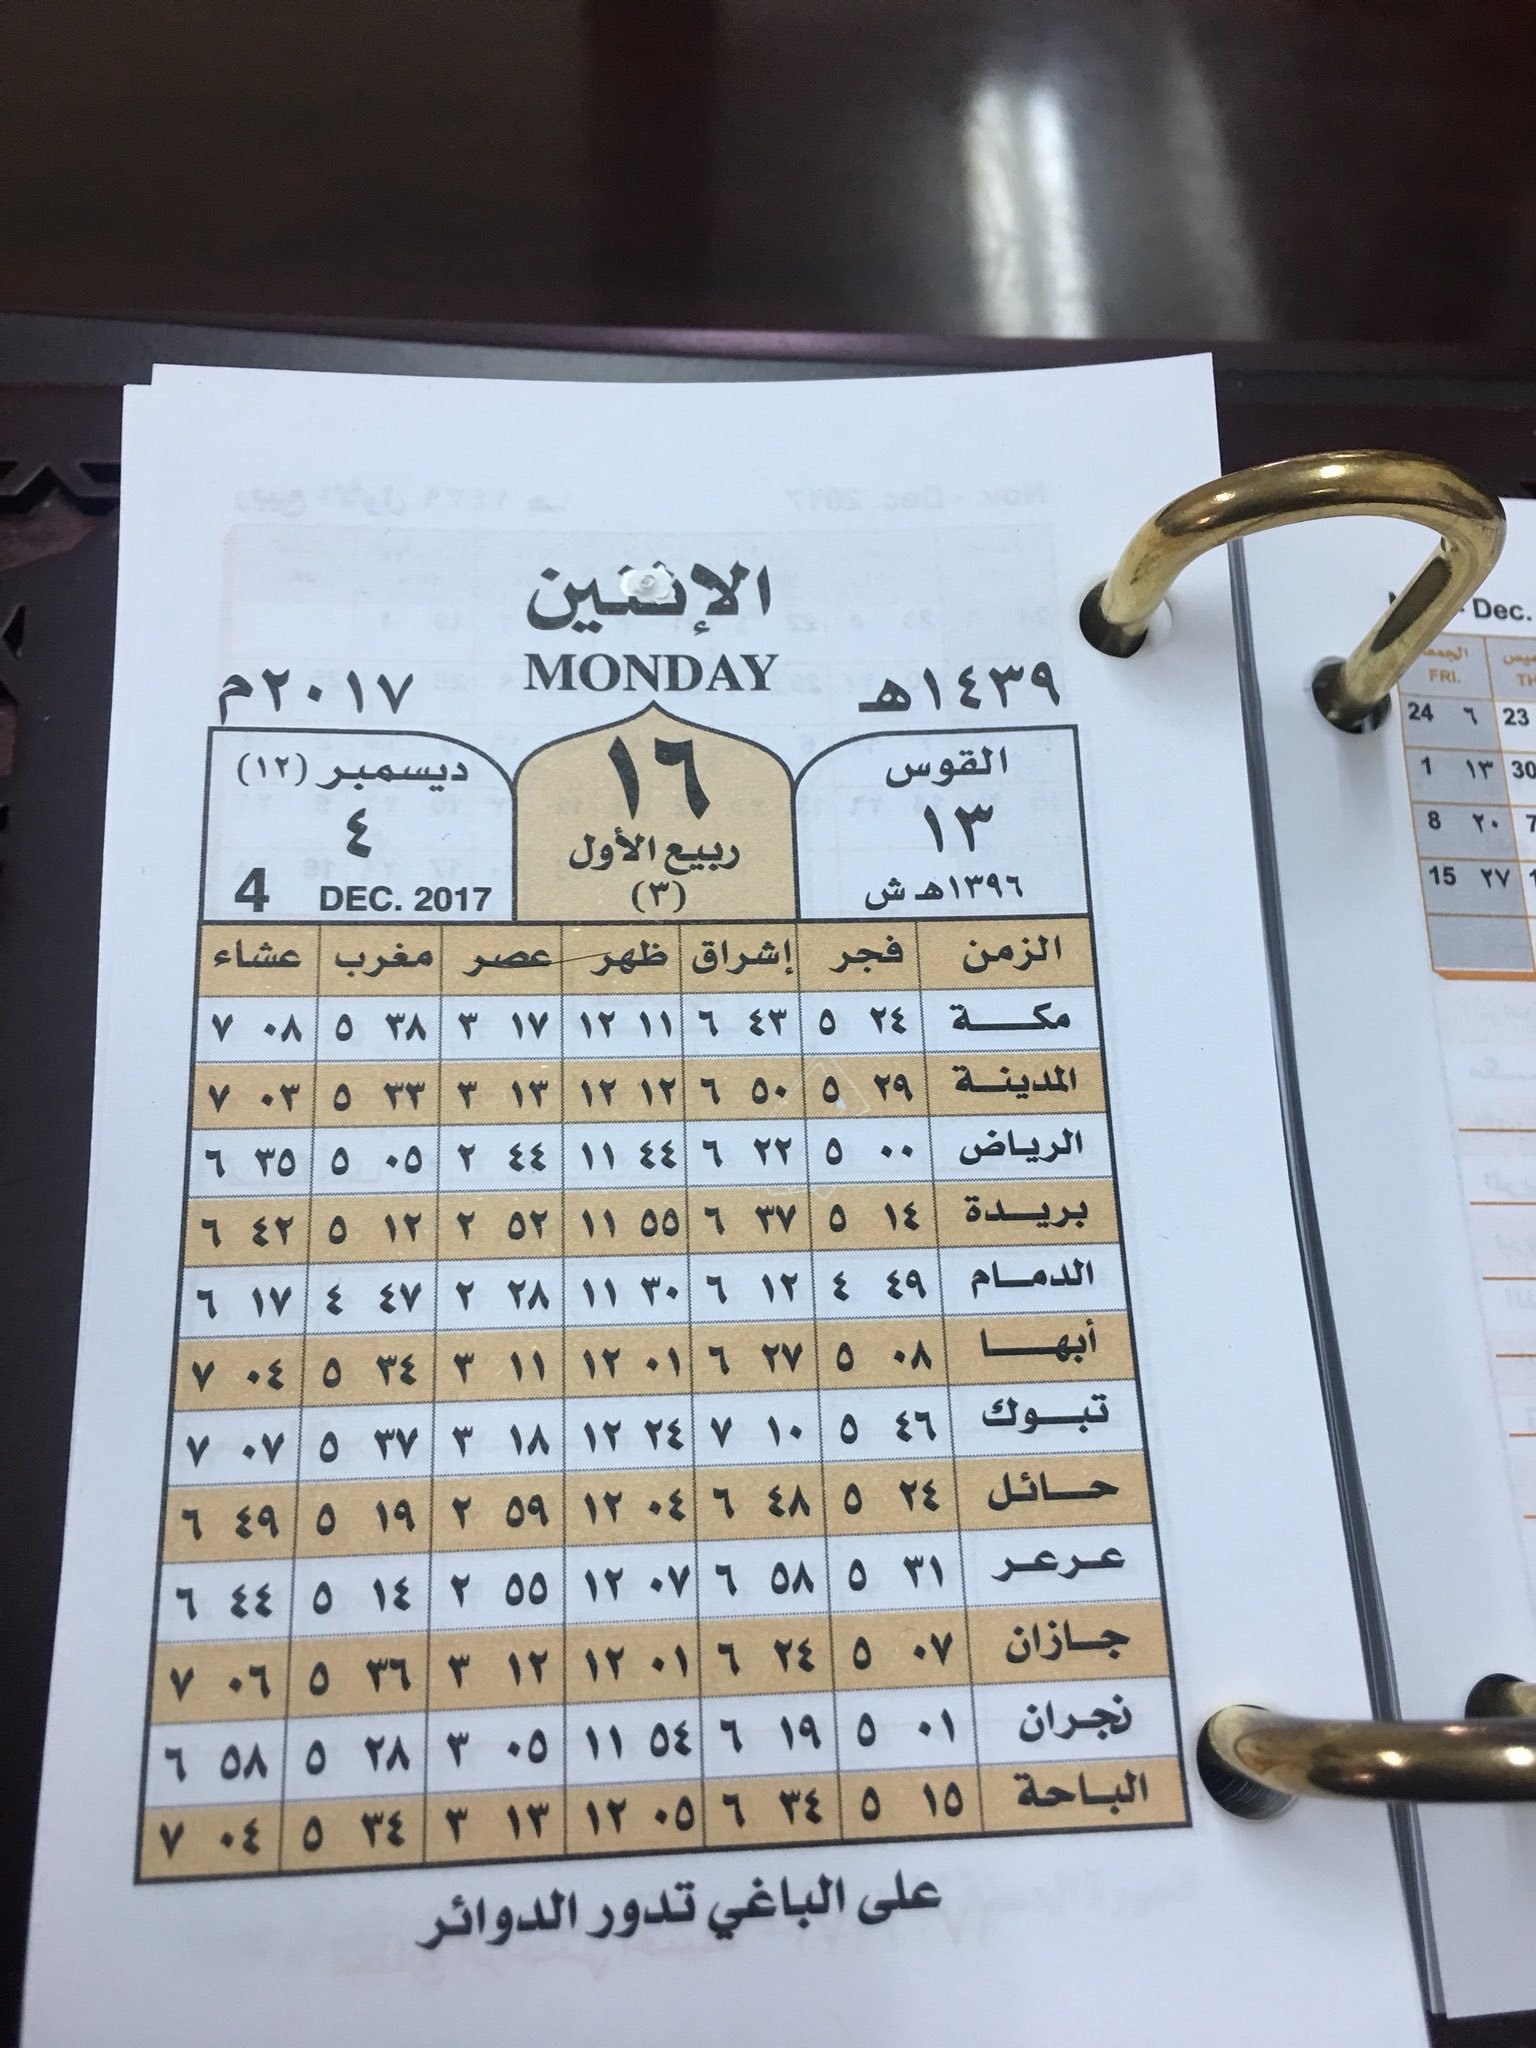 الإثنين
MONDAY
١٤٣٩هـ
٢٠١٧م
القوس
١٣
١٣٩٦هـ ش
١٦
ربيع الأول
(٣)
ديسمبر (١٢)
٤
4 DEC. 2017
الزمن فجر إشراق ظهر عصر مغرب عشاء
مكة ٢٤ ٥ ٤٣ ٦ ١١ ١٢ ١٧ ٣ ٣٨ ٥ ٠٨ ٧
المدينة ٢٩ ٥ ٥٠ ٦ ١٢ ١٢ ١٣ ٣ ٣٣ ٥ ٠٣ ٧
الرياض ٠٠ ٥ ٢٢ ٦ ٤٤ ١١ ٤٤ ٢ ٠٥ ٥ ٣٥ ٦
بريدة ١٤ ٥ ٣٧ ٦ ٥٥ ١١ ٥٢ ٢ ١٢ ٥ ٤٢ ٦
الدمام ٤٩ ٤ ١٢ ٦ ٣٠ ١١ ٢٨ ٢ ٤٧ ٤ ١٧ ٦
أبها ٠٨ ٥ ٢٧ ٦ ٠١ ١٢ ١١ ٣ ٣٤ ٥ ٠٤ ٧
تبوك ٤٦ ٥ ١٠ ٧ ٢٤ ١٢ ١٨ ٣ ٣٧ ٥ ٠٧ ٧
حائل ٢٤ ٥ ٤٨ ٦ ٠٤ ١٢ ٥٩ ٢ ١٩ ٥ ٤٩ ٦
عرعر ٣١ ٥ ٥٨ ٦ ٠٧ ١٢ ٥٥ ٢ ١٤ ٥ ٤٤ ٦
جازان ٠٧ ٥ ٢٤ ٦ ٠١ ١٢ ١٢ ٣ ٣٦ ٥ ٠٦ ٧
نجران ٠١ ٥ ١٩ ٦ ٥٤ ١١ ٠٥ ٣ ٢٨ ٥ ٥٨ ٦
الباحة ١٥ ٥ ٣٤ ٦ ٠٥ ١٢ ١٣ ٣ ٣٤ ٥ ٠٤ ٧
على الباغي تدور الدوائر
Dec.
الجمعة
FRI.
24 ٦ 23
1 ١٣ 30
8 ٢٠
15 ٢٧